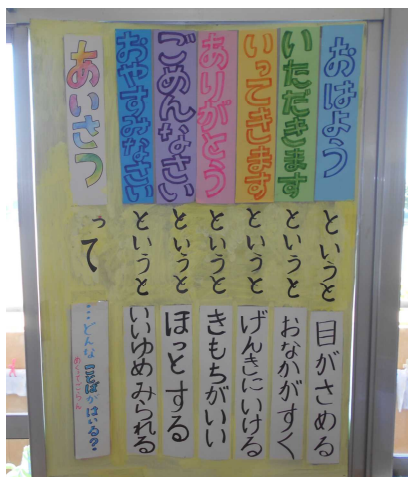 おはよう
というと
目がさめる
いただきます
というと
おなかがすく
いってきます
というと
げんきにいける
ありがとう
というと
きもちがいい
ごめんなさい
というと
ほっとする
おやすみなさい
というと
いいゆめみられる
あいさつ
って
…どんなことばがはいる?
めくってごらん